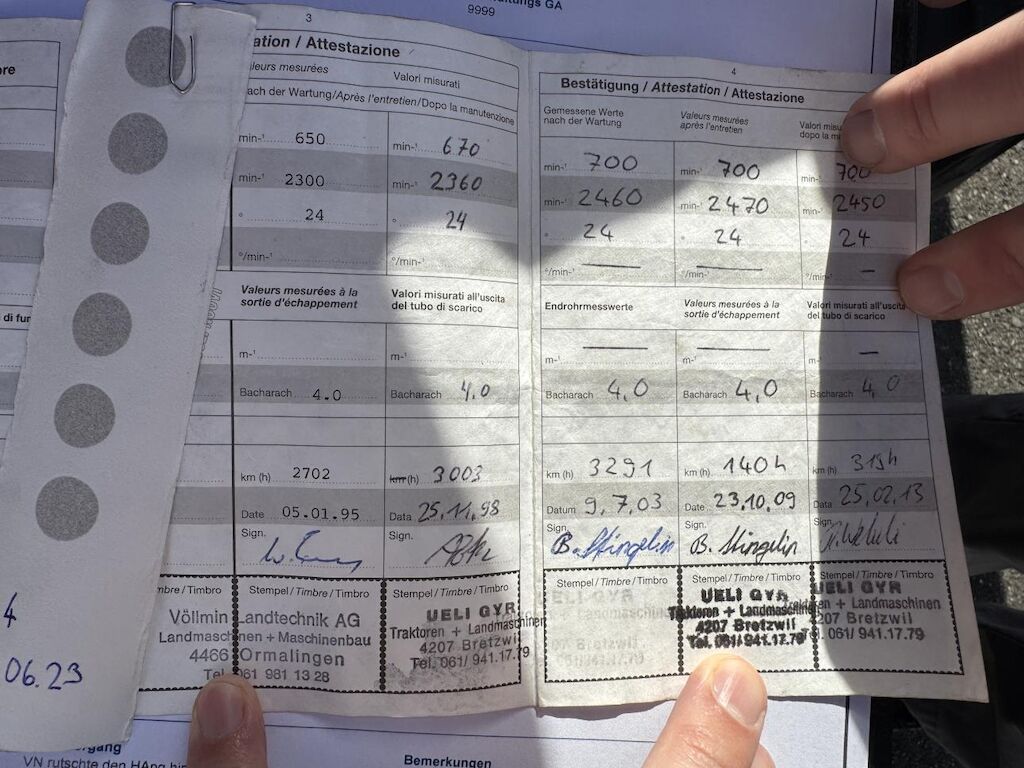 ltungs GA
9999
3
tation / Attestazione
Valeurs mesurées Valori misurati
ach der Wartung/Après l'entretien/Dopo la manutenzione
min-¹ 650 min-¹ 670
min-¹ 2300 min-¹ 2360
° 24 ° 24
°/min-¹ °/min-¹
Valeurs mesurées à la sortie d'échappement
Valori misurati all'uscita del tubo di scarico
m-¹ m-¹
Bacharach 4.0 Bacharach 4,0
km (h) 2702 km (h) 3003
Date 05.01.95 Data 25.11.98
Sign. Sign.
mbre / Timbro Stempel / Timbre / Timbro Stempel / Timbre / Timbro
Völlmin Landtechnik AG
Landmaschinen + Maschinenbau
4466 Ormalingen
Tel. 061 981 13 28
UELI GYR
Traktoren + Landmaschinen
4207 Bretzwil
Tel. 061/ 941.17.79
4
Bestätigung / Attestation / Attestazione
Gemessene Werte nach der Wartung
Valeurs mesurées après l'entretien
Valori misu
dopo la m
min-¹ 700 min-¹ 700 min-¹ 700
min-¹ 2460 min-¹ 2470 min-¹ 2450
° 24 ° 24 ° 24
°/min-¹ — °/min-¹ — °/min-¹ —
Endrohrmesswerte
Valeurs mesurées à la sortie d'échappement
Valori misurati all'uscita del tubo di scarico
m-¹ — m-¹ — m-¹ —
Bacharach 4,0 Bacharach 4,0 Bacharach 4,0
km (h) 3291 km (h) 140h km (h) 319h
Datum 9.7.03 Date 23.10.09 Data 25.02.13
Sign. B. Stingelin Sign. B. Stingelin Sign.
Stempel / Timbre / Timbro Stempel / Timbre / Timbro Stempel / Timbre / Timbro
UELI GYR
Traktoren + Landmaschinen
4207 Bretzwil
Tel. 061/ 941.17.79
UELI GYR
Traktoren + Landmaschinen
4207 Bretzwil
Tel. 061/ 941.17.79
4
06.23
rgang
VN rutschte den HAng
Bemerkungen